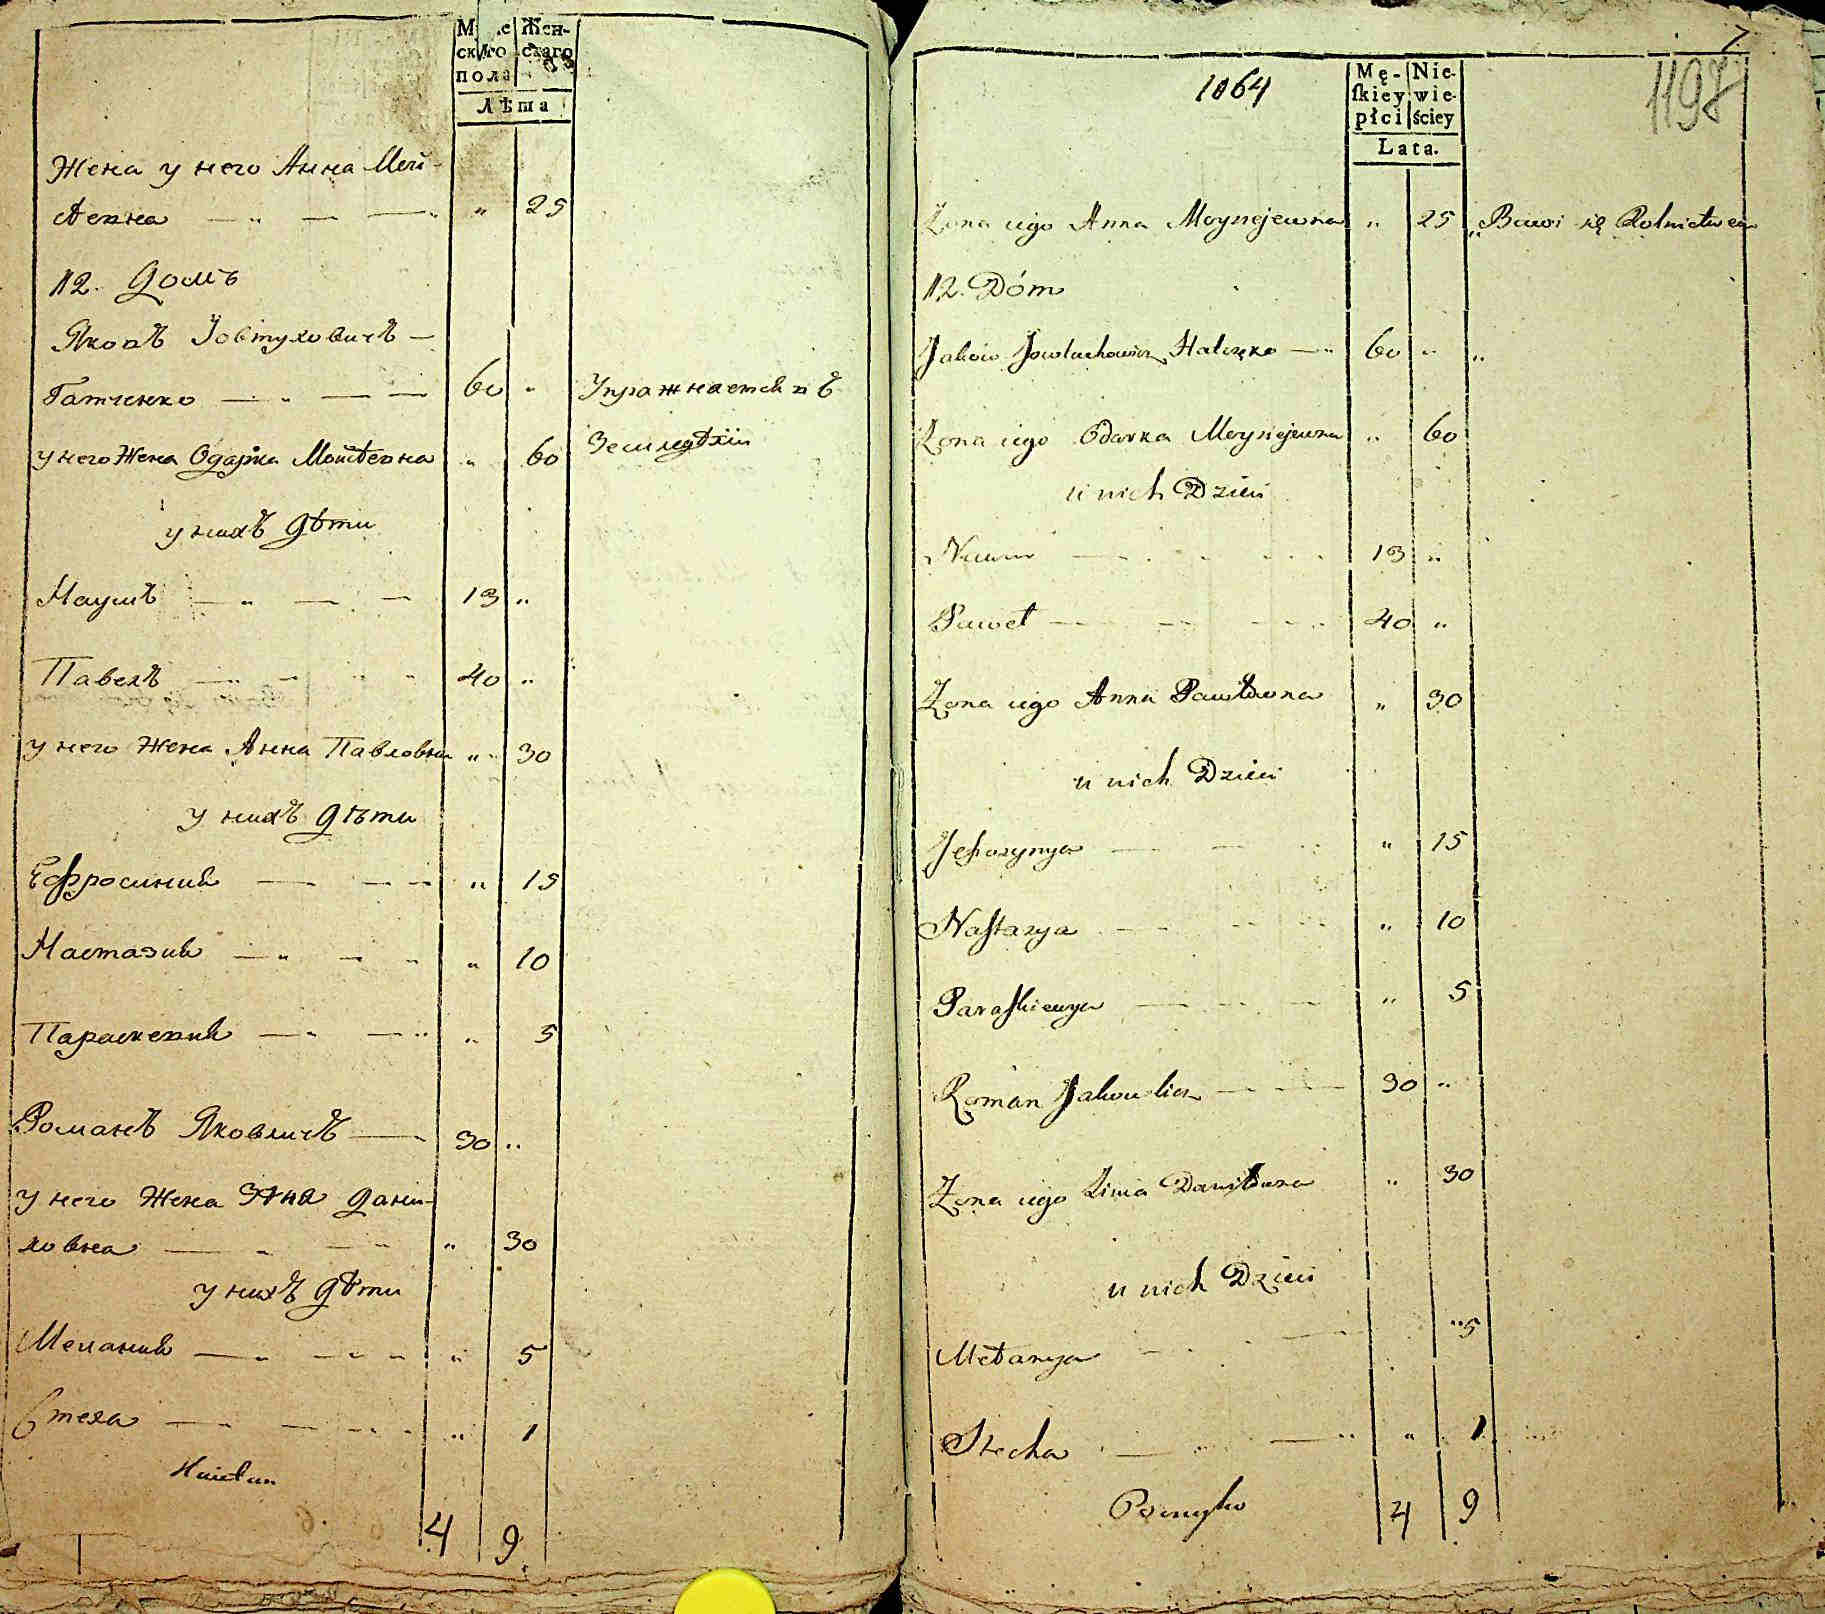 Мужескаго пола
Женскаго
Лѣта
Жена у него Анна Мой-
сѣевна — „ — — „ „ 25
12. Домъ
Яковъ Іовтуховичъ —
Гатченко — „ — — 60 „ Упражнается въ
у него Жена Одарка Мойсѣевна „ 60 Земледѣліи
у нихъ Дѣти
Наумъ — „ — — 13 „
Павелъ — 40 „
у него Жена Анна Павловна „ 30
у нихъ Дѣти
Ефросинія — „ 15
Настазия — „ — „ 10
Параскевия — „ — „ 5
Романъ Яковличъ — 30 „
у него Жена Дани-
ловна — „ 30
у нихъ Дѣти
Мелания — „ — „ 5
Стеха — „ — „ 1
4 9
7
1064
1198
Mę-skiey płci
Nie-wie-ściey
Lata.
Żona iego Anna Moysiejewna „ 25 „ Bawi się Rolnictwem
12. Dóm
Jakow Jowtuchowicz Hatczęko — „ 60 „ „
Żona iego Odarka Moysiejewna „ 60
u nich Dzieci
Naum — 13 „
Paweł — 40 „
Żona iego Anna Pawłowna „ 30
u nich Dzieci
Jefrozynya — „ 15
Nastazya — „ 10
Paraskiewya — „ 5
Roman Jakowlicz — 30 „
Żona iego Daniłowna „ 30
u nich Dzieci
Mełanya — „ 5
Stecha — „ 1
4 9